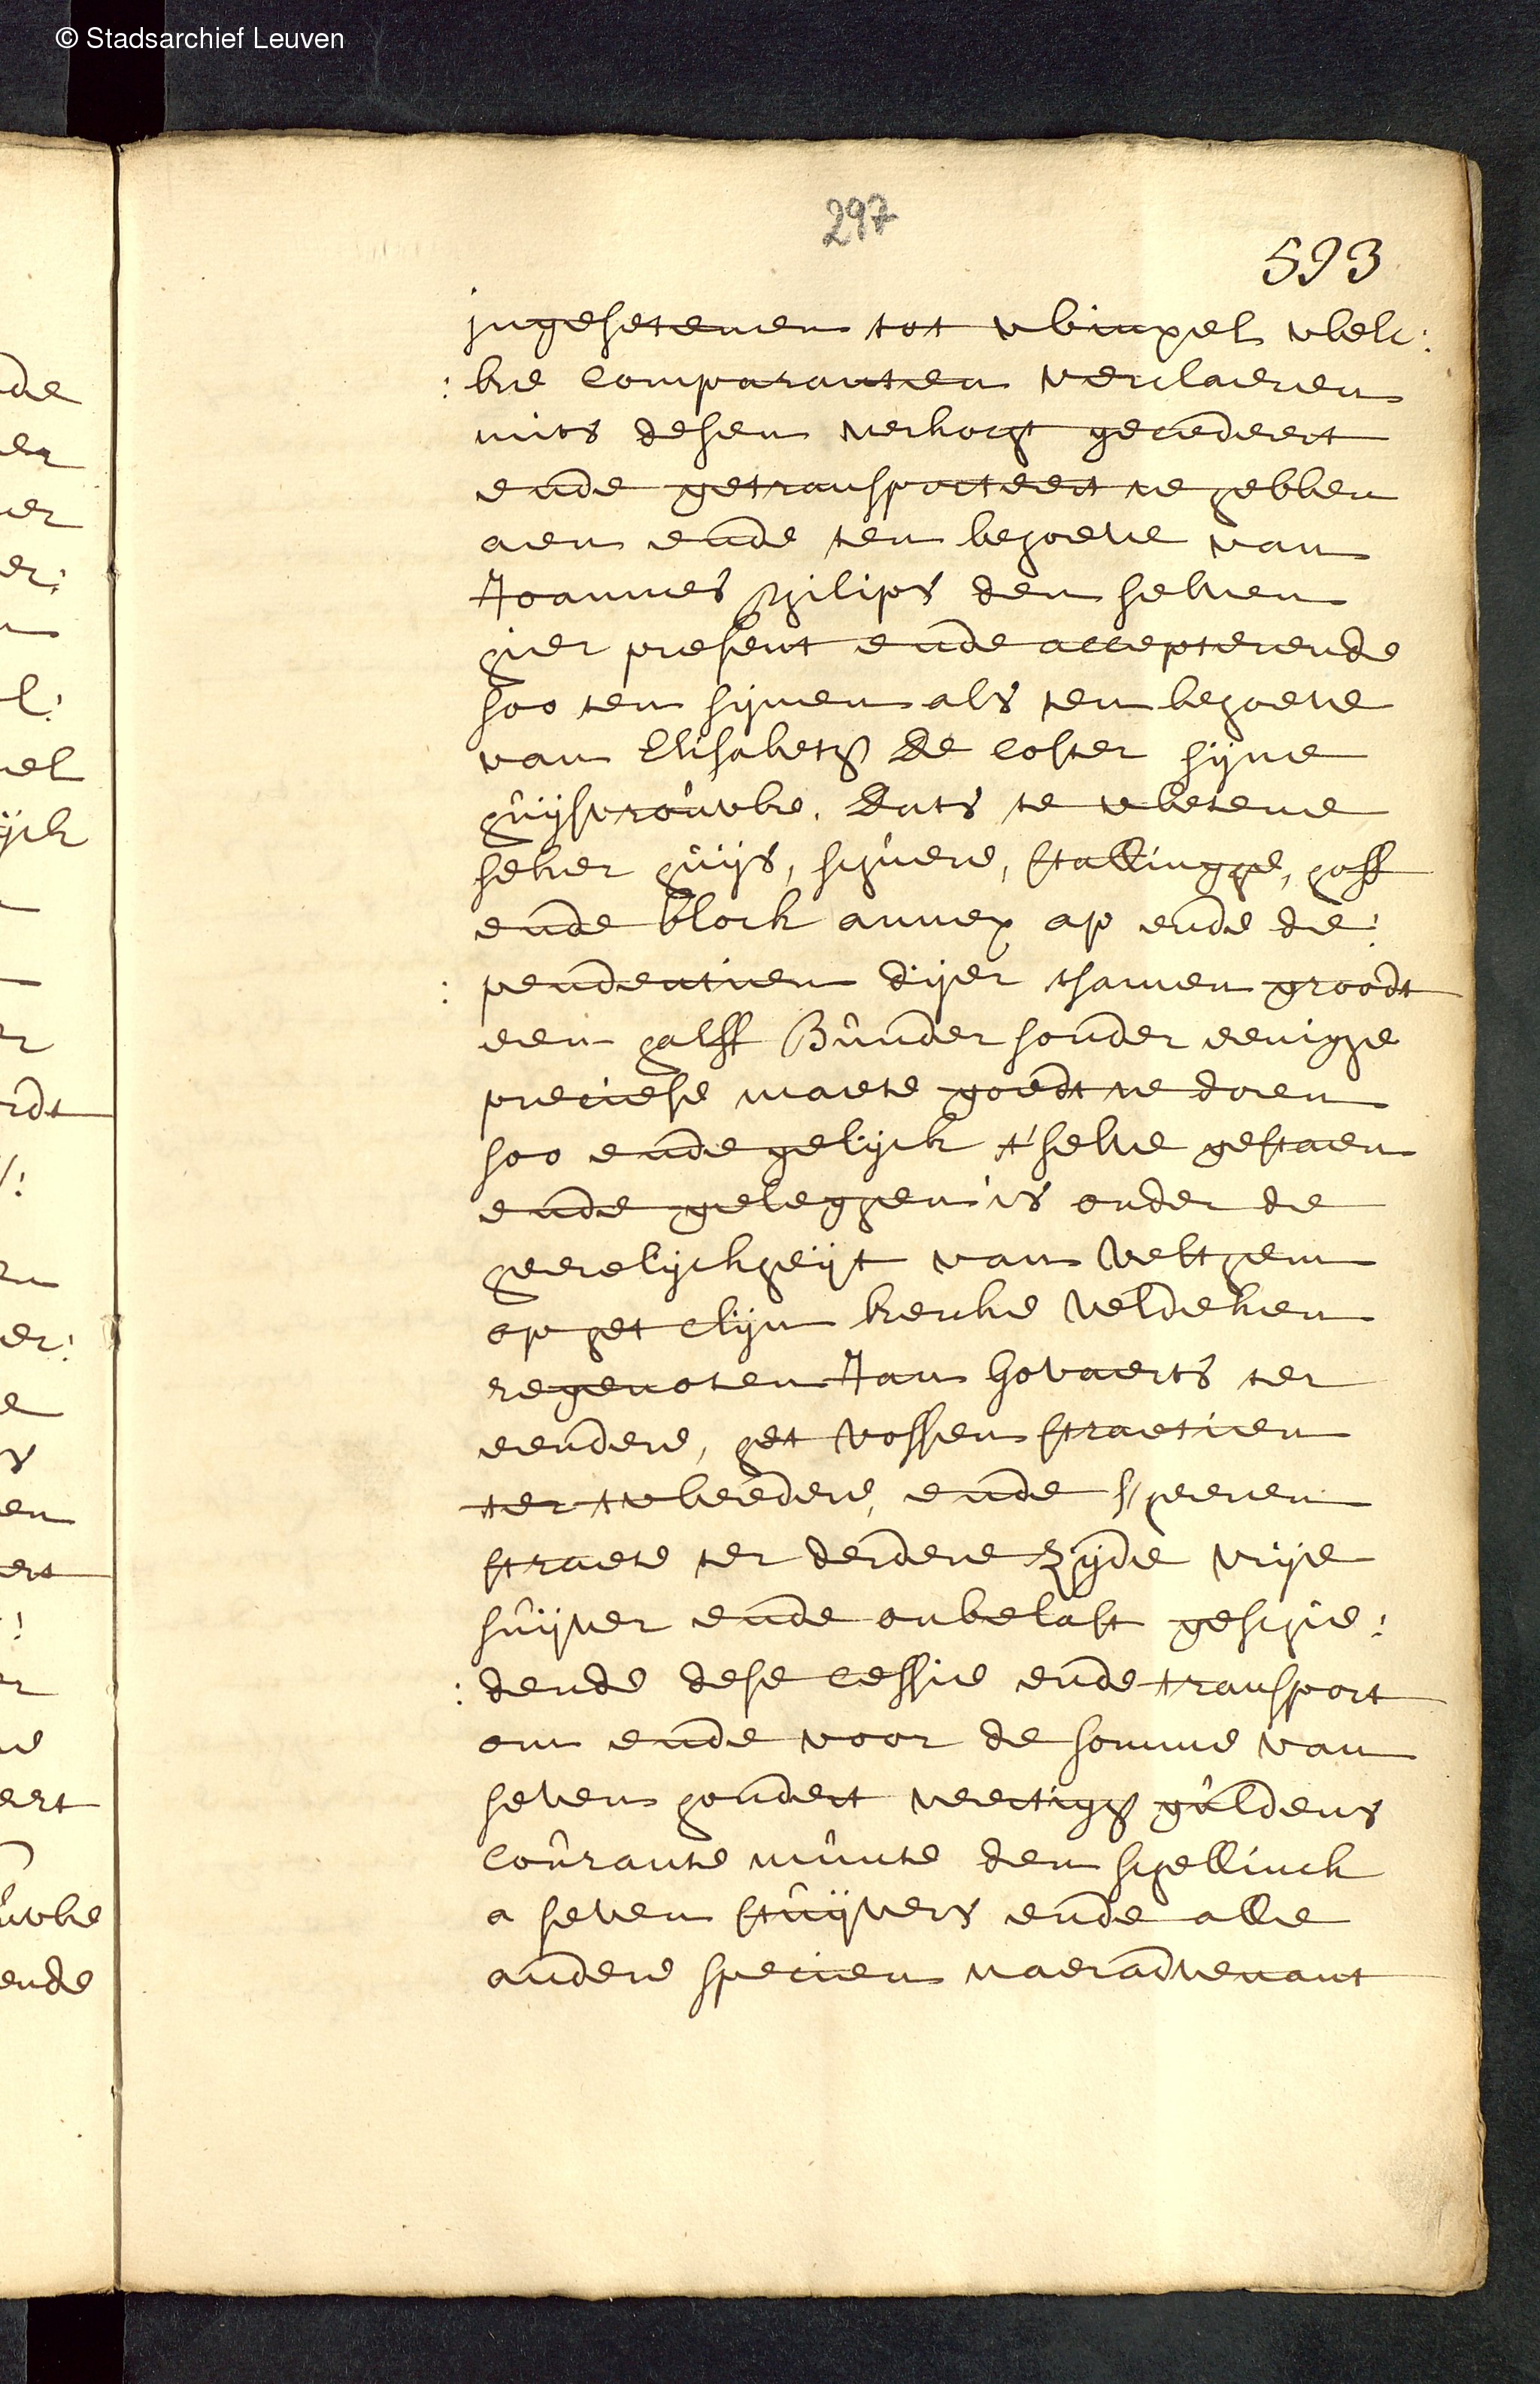 © Stadsarchief Leuven
297
593
ingesetenen tot Winxel wel:
:ke comparanten verclaeren
mits desen verkocht gecedeert
ende getransporteert te hebben
aen ende ten behoeve van
Joannes Philips den selven
hier present ende accepterende
soo ten synen als ten behoeve
van Elisabeth De Coster syne
huijsvrouwe. Dats te wetene
seker huijs, schuere, stallinghe, hoff
ende block annex ap ende de:
:pendentien dijer tsamen groodt
een halff Bunder sonder eenighe
preciese maete goedt te doen
soo ende gelijck t'selve gestaen
ende gelegen is onder de
heerelijckheijt van Velthem
op het clijn kercke veldeken
regenoten Jan Govaerts ter
eendere, het vossen straetien
ter tweedere, ende s'heeren
straete ter derdere zijde vrije
suijver ende onbelast geschie:
:dende dese cessie ende transport
om ende voor de somme van
seven hondert veertigh guldens
courante munte den schellinck
a seven stuijvers ende alle
andere specien naer advenant
de
er
er
er:
l:
el
ijck
rdt
er:
e
en
ert
ert
uwe
ende